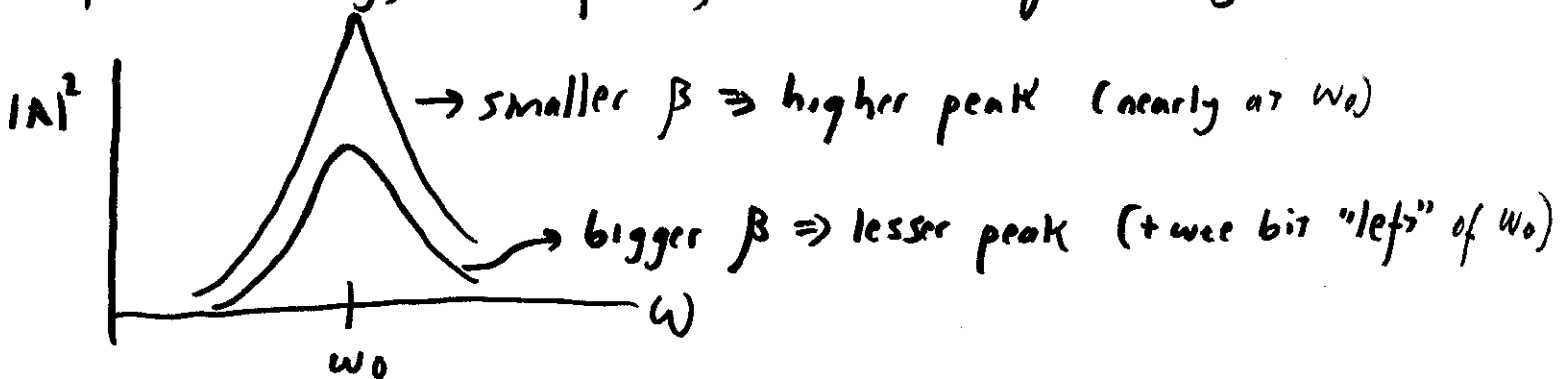 |A|² → smaller β ⇒ higher peak (nearly at ω₀)
→ bigger β ⇒ lesser peak (+ wee bit "left" of ω₀)
ω
ω₀